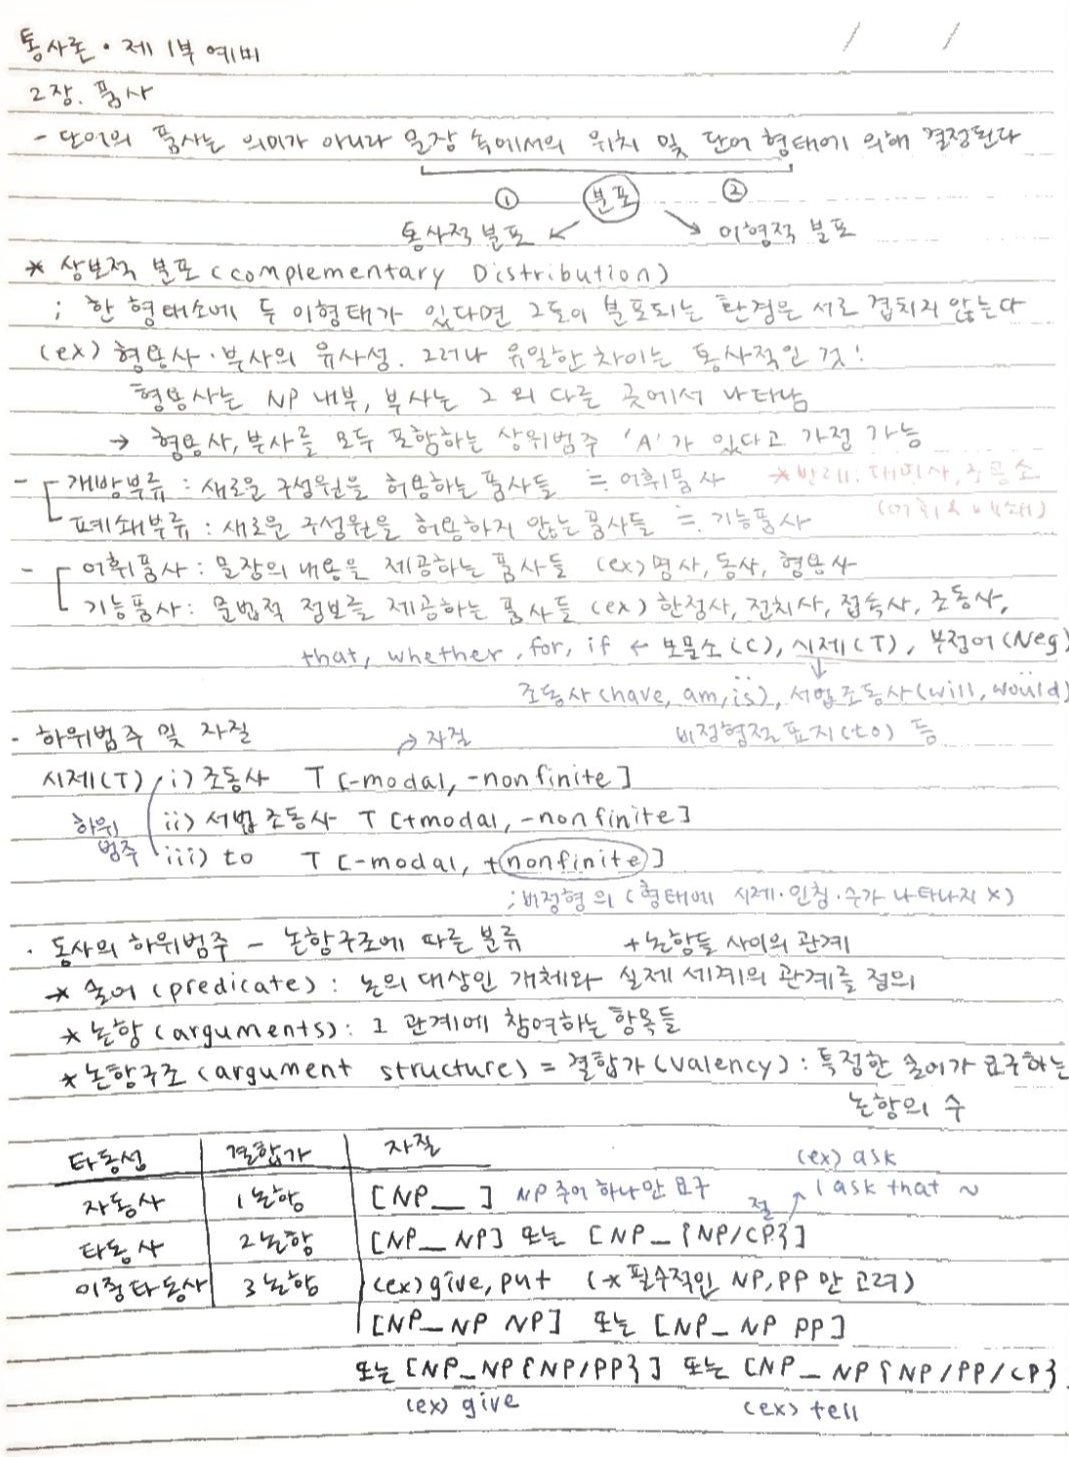 통사론 · 제 1부 예비
/ /
2장. 품사
- 단어의 품사는 의미가 아니라 문장 속에서의 위치 및 단어 형태에 의해 결정된다
① 분포 ②
통사적 분포 ↙ ↘ 어형적 분포
* 상보적 분포 (complementary Distribution)
; 한 형태소에 두 이형태가 있다면 그들이 분포되는 환경은 서로 겹치지 않는다
(ex) 형용사·부사의 유사성. 그러나 유일한 차이는 통사적인 것!
형용사는 NP 내부, 부사는 그 외 다른 곳에서 나타남
→ 형용사, 부사를 모두 포함하는 상위범주 'A'가 있다고 가정 가능
- 개방부류 : 새로운 구성원을 허용하는 품사들 ≒ 어휘품사 *반례: 대명사, 조응소
폐쇄부류 : 새로운 구성원을 허용하지 않는 품사들 ≒ 기능품사 (어휘 & 폐쇄)
- 어휘품사 : 문장의 내용을 제공하는 품사들 (ex) 명사, 동사, 형용사
기능품사 : 문법적 정보를 제공하는 품사들 (ex) 한정사, 전치사, 접속사, 조동사,
that, whether, for, if ← 보문소(C), 시제(T), 부정어(Neg)
조동사(have, am, is), 서법조동사(will, would)
- 하위범주 및 자질 → 자질 비정형절 표지(to) 등
시제(T) i) 조동사 T [-modal, -nonfinite]
하위 ii) 서법조동사 T [+modal, -nonfinite]
범주 iii) to T [-modal, +nonfinite]
; 비정형의 (형태에 시제·인칭·수가 나타나지 X)
· 동사의 하위범주 - 논항구조에 따른 분류 +논항들 사이의 관계
* 술어 (predicate) : 논의 대상인 개체와 실제 세계의 관계를 정의
* 논항 (arguments) : 그 관계에 참여하는 항목들
* 논항구조 (argument structure) = 결합가 (valency) : 특정한 술어가 요구하는
논항의 수
타동성 결합가 자질 (ex) ask
자동사 1논항 [NP__] NP 주어 하나만 요구 절 I ask that ~
타동사 2논항 [NP_NP] 또는 [NP_{NP/CP}]
이중타동사 3논항 (ex) give, put (*필수적인 NP, PP 만 고려)
[NP_NP NP] 또는 [NP_NP PP]
또는 [NP_NP{NP/PP}] 또는 [NP_NP{NP/PP/CP}
(ex) give (ex) tell